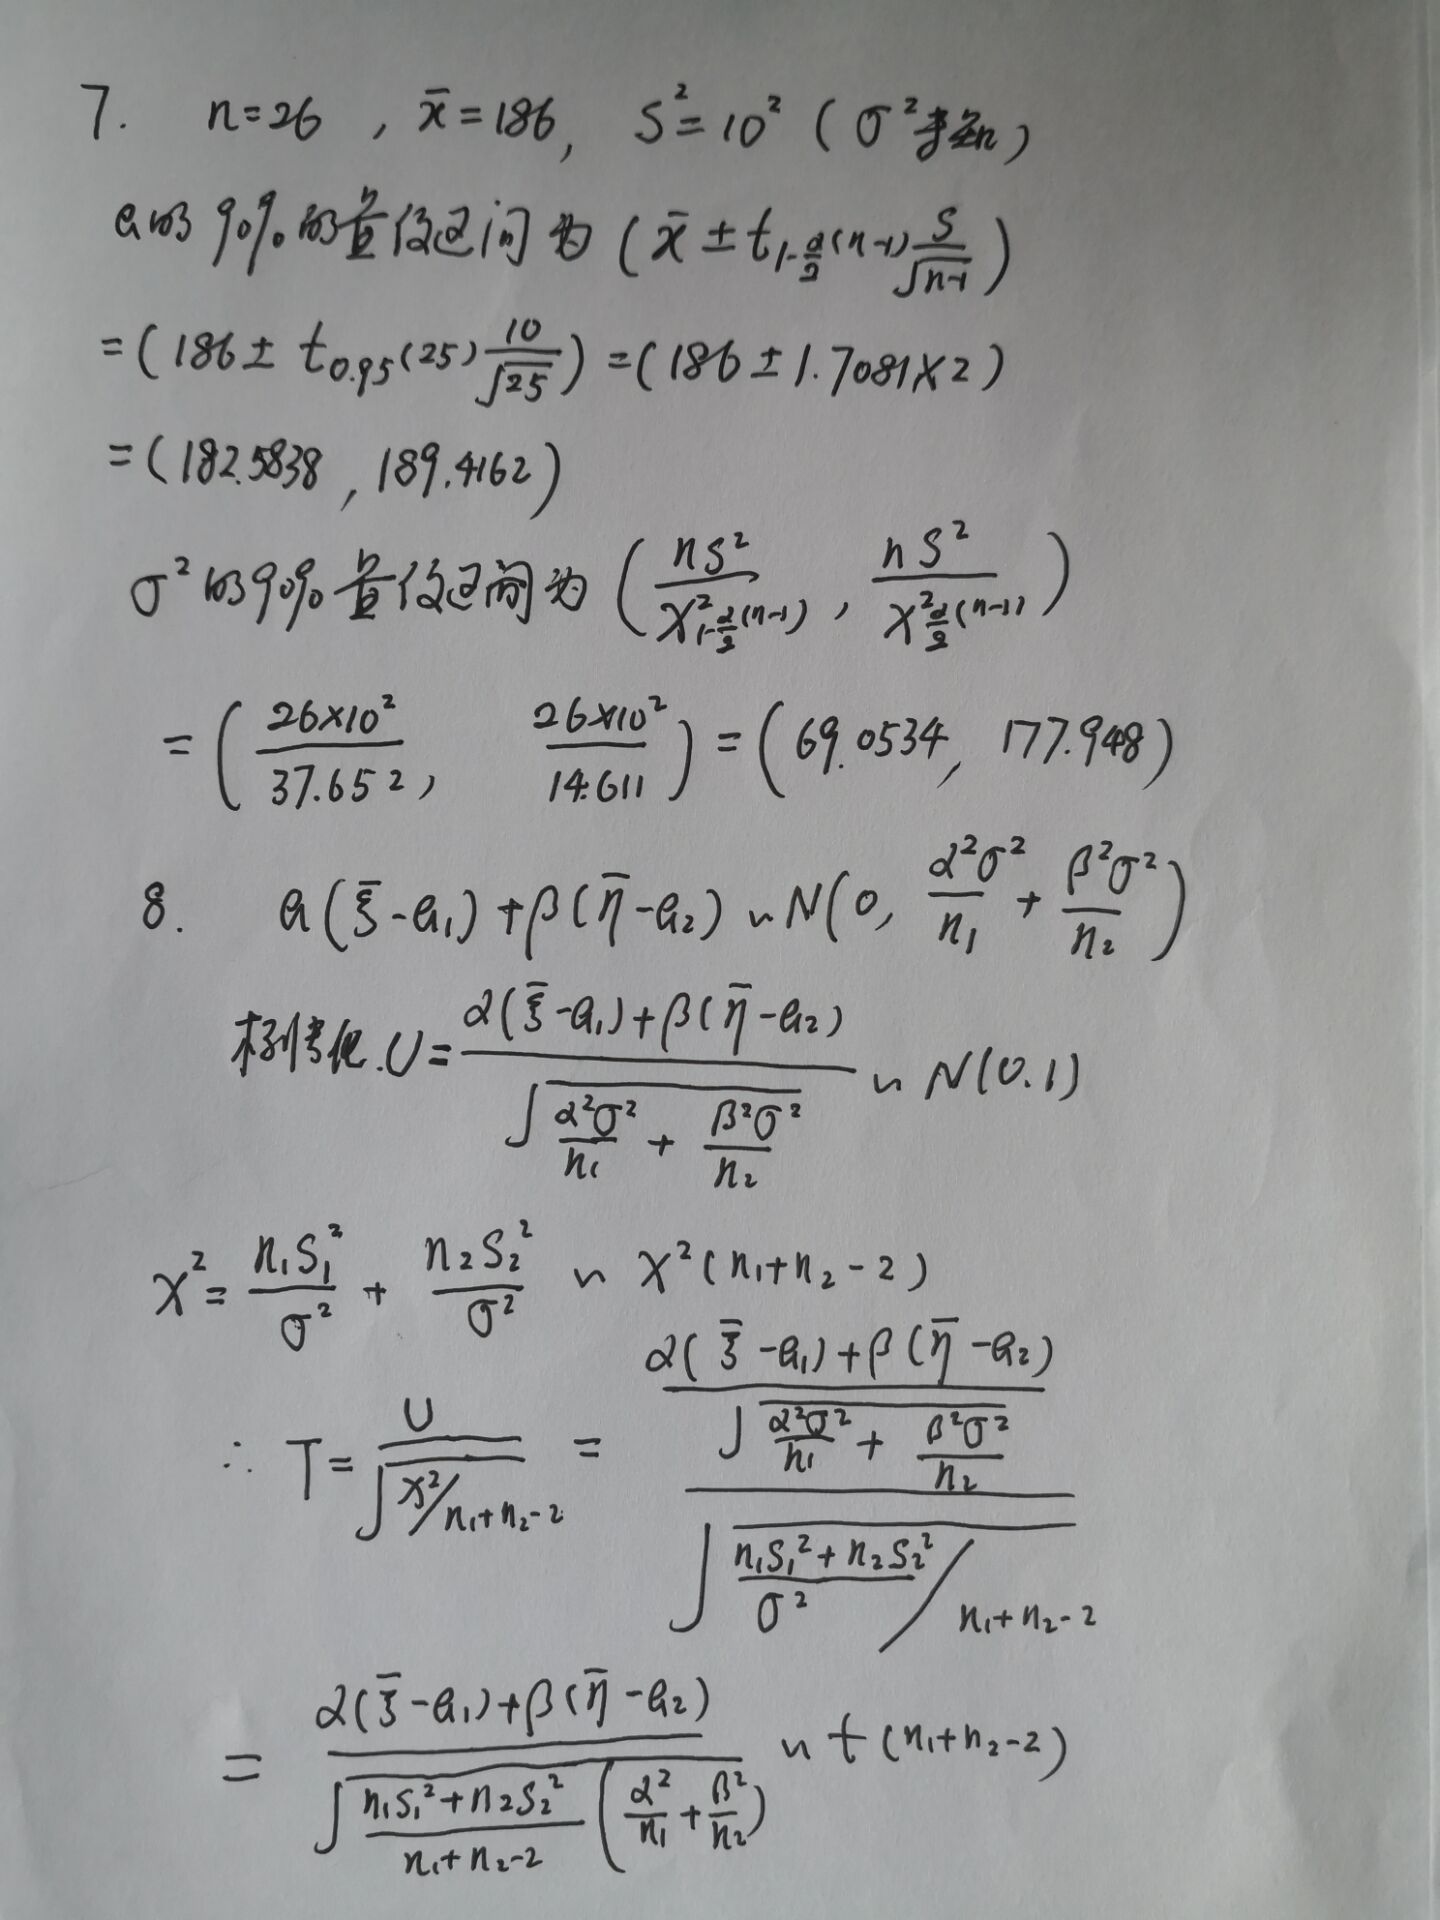 7. n=26 , x̄=186, S²=10² (σ²未知)
a的90%的置信区间为 (x̄ ± t_{1-α/2}(n-1) S/√(n-1))
=(186 ± t_{0.95}(25) 10/√25) =(186 ± 1.7081×2)
=(182.5838, 189.4162)
σ²的90%置信区间为 (nS²/χ²_{1-α/2}(n-1), nS²/χ²_{α/2}(n-1))
= (26×10²/37.652, 26×10²/14.611) = (69.0534, 177.948)
8. a(ξ̄-a₁)+β(η̄-a₂) ~ N(0, α²σ²/n₁ + β²σ²/n₂)
标准化.U= (α(ξ̄-a₁)+β(η̄-a₂))/√(α²σ²/n₁ + β²σ²/n₂) ~ N(0.1)
χ²= n₁S₁²/σ² + n₂S₂²/σ² ~ χ²(n₁+n₂-2)
∴ T= U/√(χ²/n₁+n₂-2) = ((α(ξ̄-a₁)+β(η̄-a₂))/√(α²σ²/n₁ + β²σ²/n₂))/√((n₁S₁²+n₂S₂²)/σ² / n₁+n₂-2)
= (α(ξ̄-a₁)+β(η̄-a₂))/√((n₁S₁²+n₂S₂²)/(n₁+n₂-2) (α²/n₁+β²/n₂)) ~ t(n₁+n₂-2)